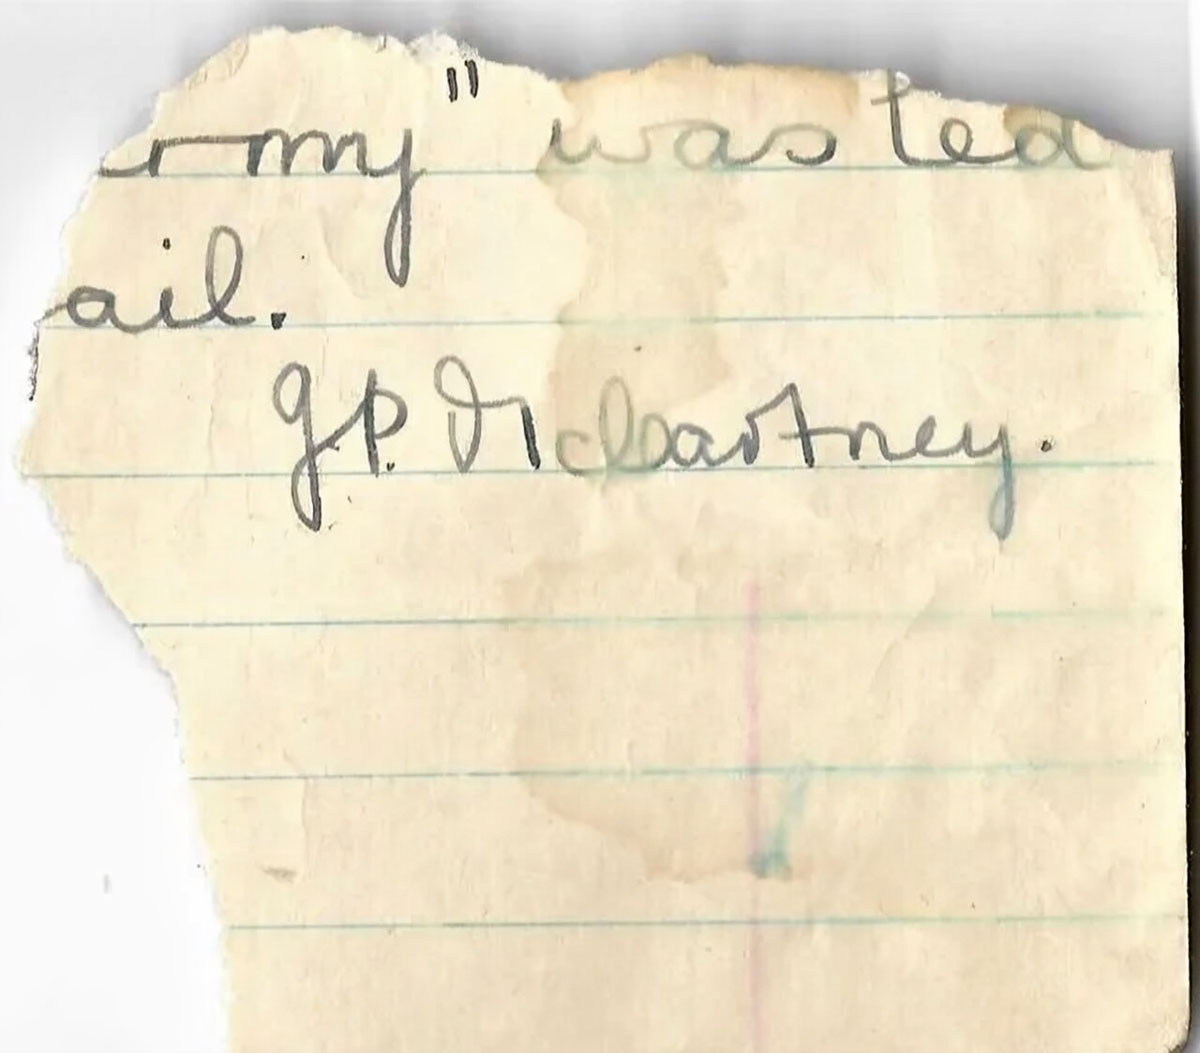 rmy" wasted
ail.
J.P. McCartney.